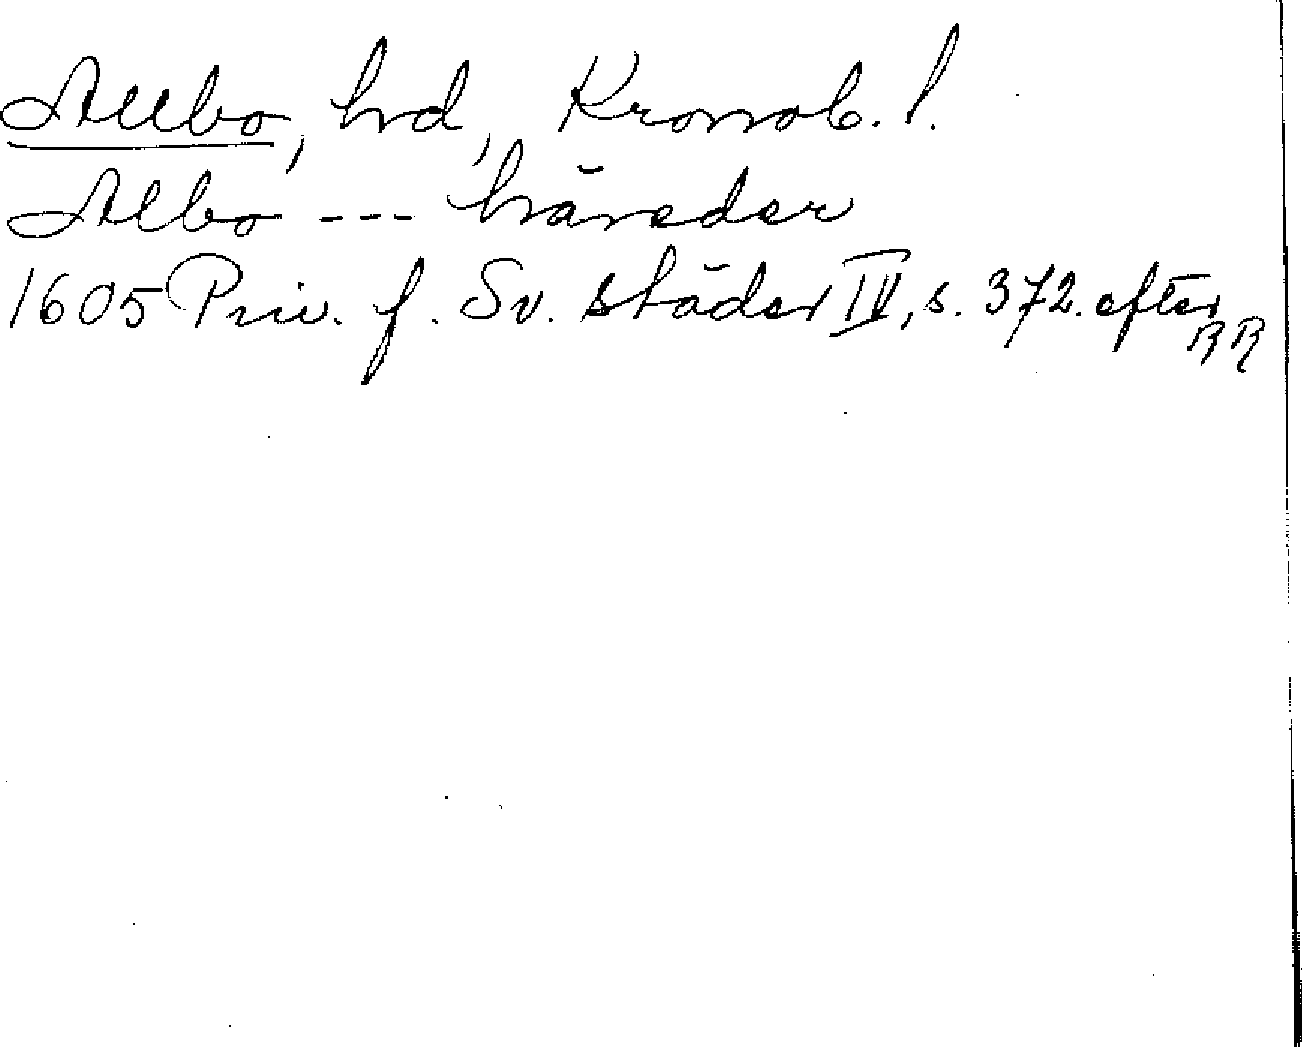 Allbo, hrd, Kronob. l.
Albo --- häreder
1605 Priv. f. Sv. städer IV, s. 372. efter RR